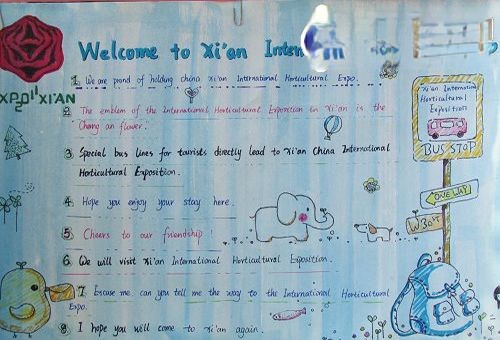 Welcome to Xi'an Inter
1. We are proud of holding China Xi'an International Horticultural Expo.
2. The emblem of the International Horticultural Exposition in Xi'an is the
Chang'an flower.
3. Special bus lines for tourists directly lead to Xi'an China International
Horticultural Exposition.
4. Hope you enjoy your stay here.
5. Cheers to our friendship!
6. We will visit Xi'an International Horticultural Exposition.
7. Excuse me. can you tell me the way to the International Horticultural
Expo.
8. I hope you will come to Xi'an again.
XI'AN
Xi'an Internation
Horticultural
Exposition
BUS STOP
ONE WAY